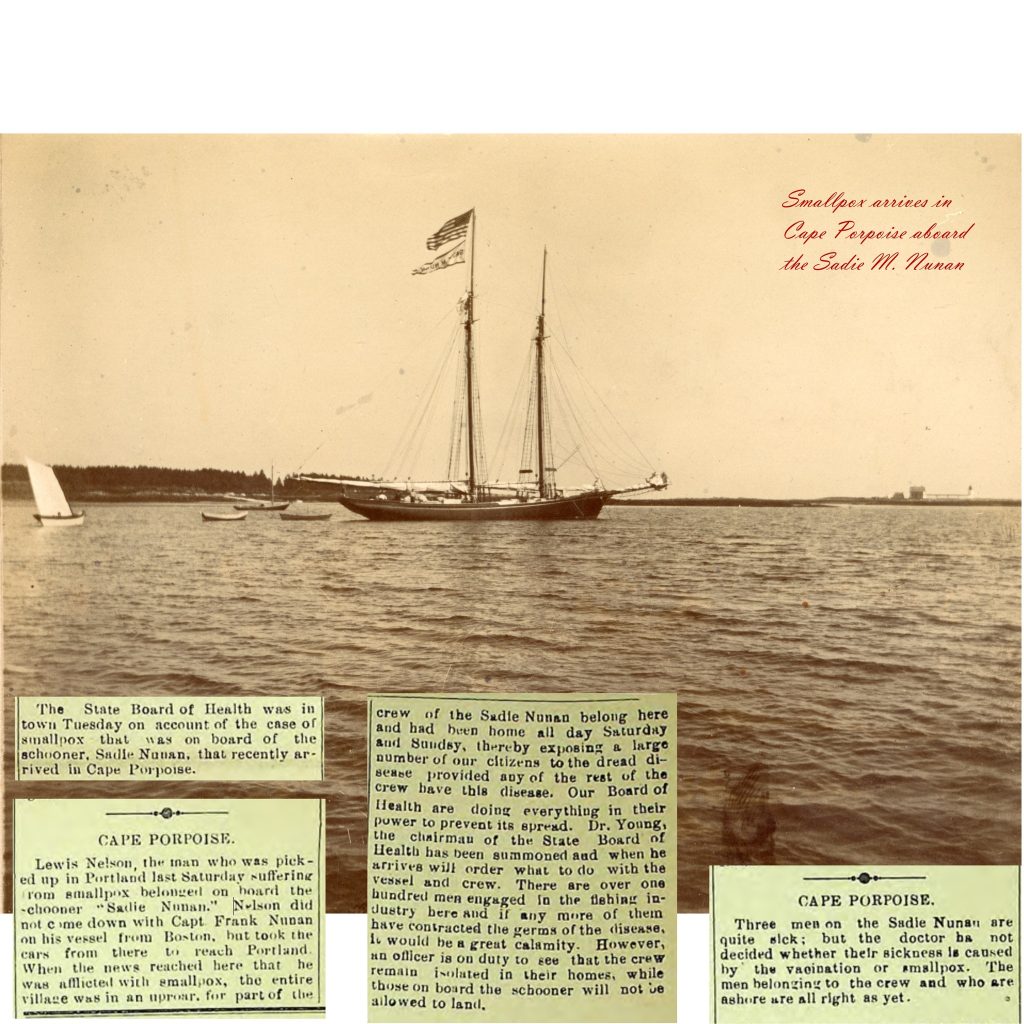 Smallpox arrives in
Cape Porpoise aboard
the Sadie M. Nunan
The State Board of Health was in
town Tuesday on account of the case of
smallpox that was on board of the
schooner, Sadie Nunan, that recently ar-
rived in Cape Porpoise.
CAPE PORPOISE.
Lewis Nelson, the man who was pick-
ed up in Portland last Saturday suffering
from smallpox belonged on board the
schooner "Sadie Nunan." Nelson did
not come down with Capt. Frank Nunan
on his vessel from Boston, but took the
cars from there to reach Portland.
When the news reached here that he
was afflicted with smallpox, the entire
village was in an uproar, for part of the
crew of the Sadie Nunan belong here
and had been home all day Saturday
and Sunday, thereby exposing a large
number of our citizens to the dread di-
sease provided any of the rest of the
crew have this disease. Our Board of
Health are doing everything in their
power to prevent its spread. Dr. Young,
the chairman of the State Board of
Health has been summoned and when he
arrives will order what to do with the
vessel and crew. There are over one
hundred men engaged in the fishing in-
dustry here and if any more of them
have contracted the germs of the disease,
it would be a great calamity. However,
an officer is on duty to see that the crew
remain isolated in their homes, while
those on board the schooner will not be
allowed to land.
CAPE PORPOISE.
Three men on the Sadie Nunan are
quite sick; but the doctor ha not
decided whether their sickness is caused
by the vacination or smallpox. The
men belonging to the crew and who are
ashore are all right as yet.